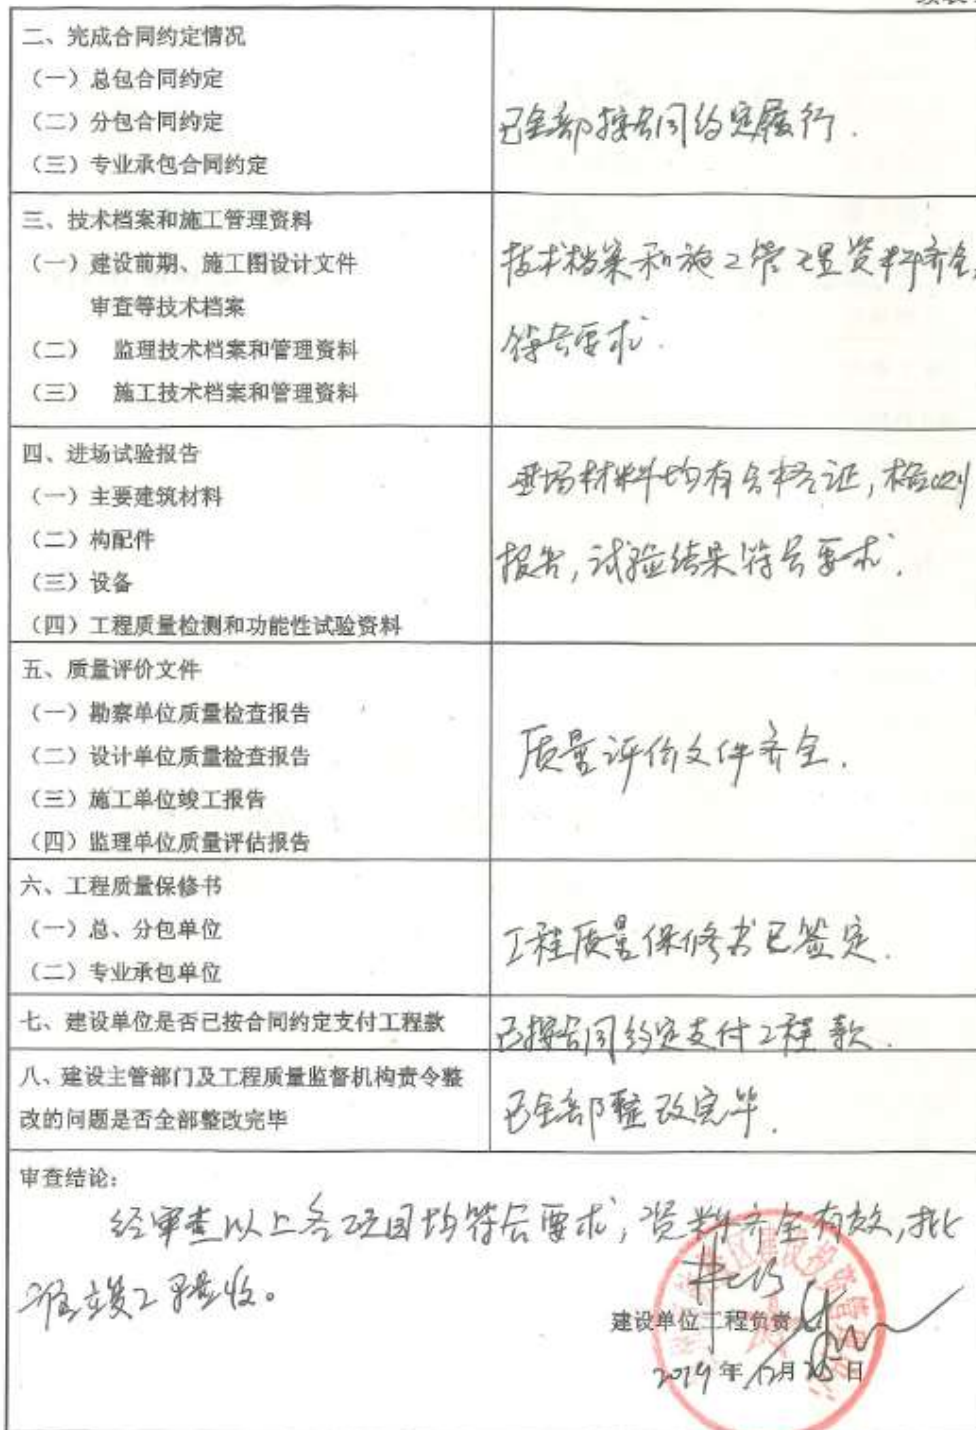 二、完成合同约定情况
（一）总包合同约定
（二）分包合同约定
（三）专业承包合同约定
已全部按合同约定履行.
三、技术档案和施工管理资料
（一）建设前期、施工图设计文件
审查等技术档案
（二） 监理技术档案和管理资料
（三） 施工技术档案和管理资料
技术档案和施工管理资料齐全,
符合要求.
四、进场试验报告
（一）主要建筑材料
（二）构配件
（三）设备
（四）工程质量检测和功能性试验资料
进场材料均有合格证,检测
报告,试验结果符合要求.
五、质量评价文件
（一）勘察单位质量检查报告
（二）设计单位质量检查报告
（三）施工单位竣工报告
（四）监理单位质量评估报告
质量评价文件齐全.
六、工程质量保修书
（一）总、分包单位
（二）专业承包单位
工程质量保修书已签定.
七、建设单位是否已按合同约定支付工程款
已按合同约定支付工程款.
八、建设主管部门及工程质量监督机构责令整
改的问题是否全部整改完毕
已全部整改完毕.
审查结论：
经审查以上各项目均符合要求,资料齐全有效,批
准竣工验收。
建设单位工程负责
2019年12月25日